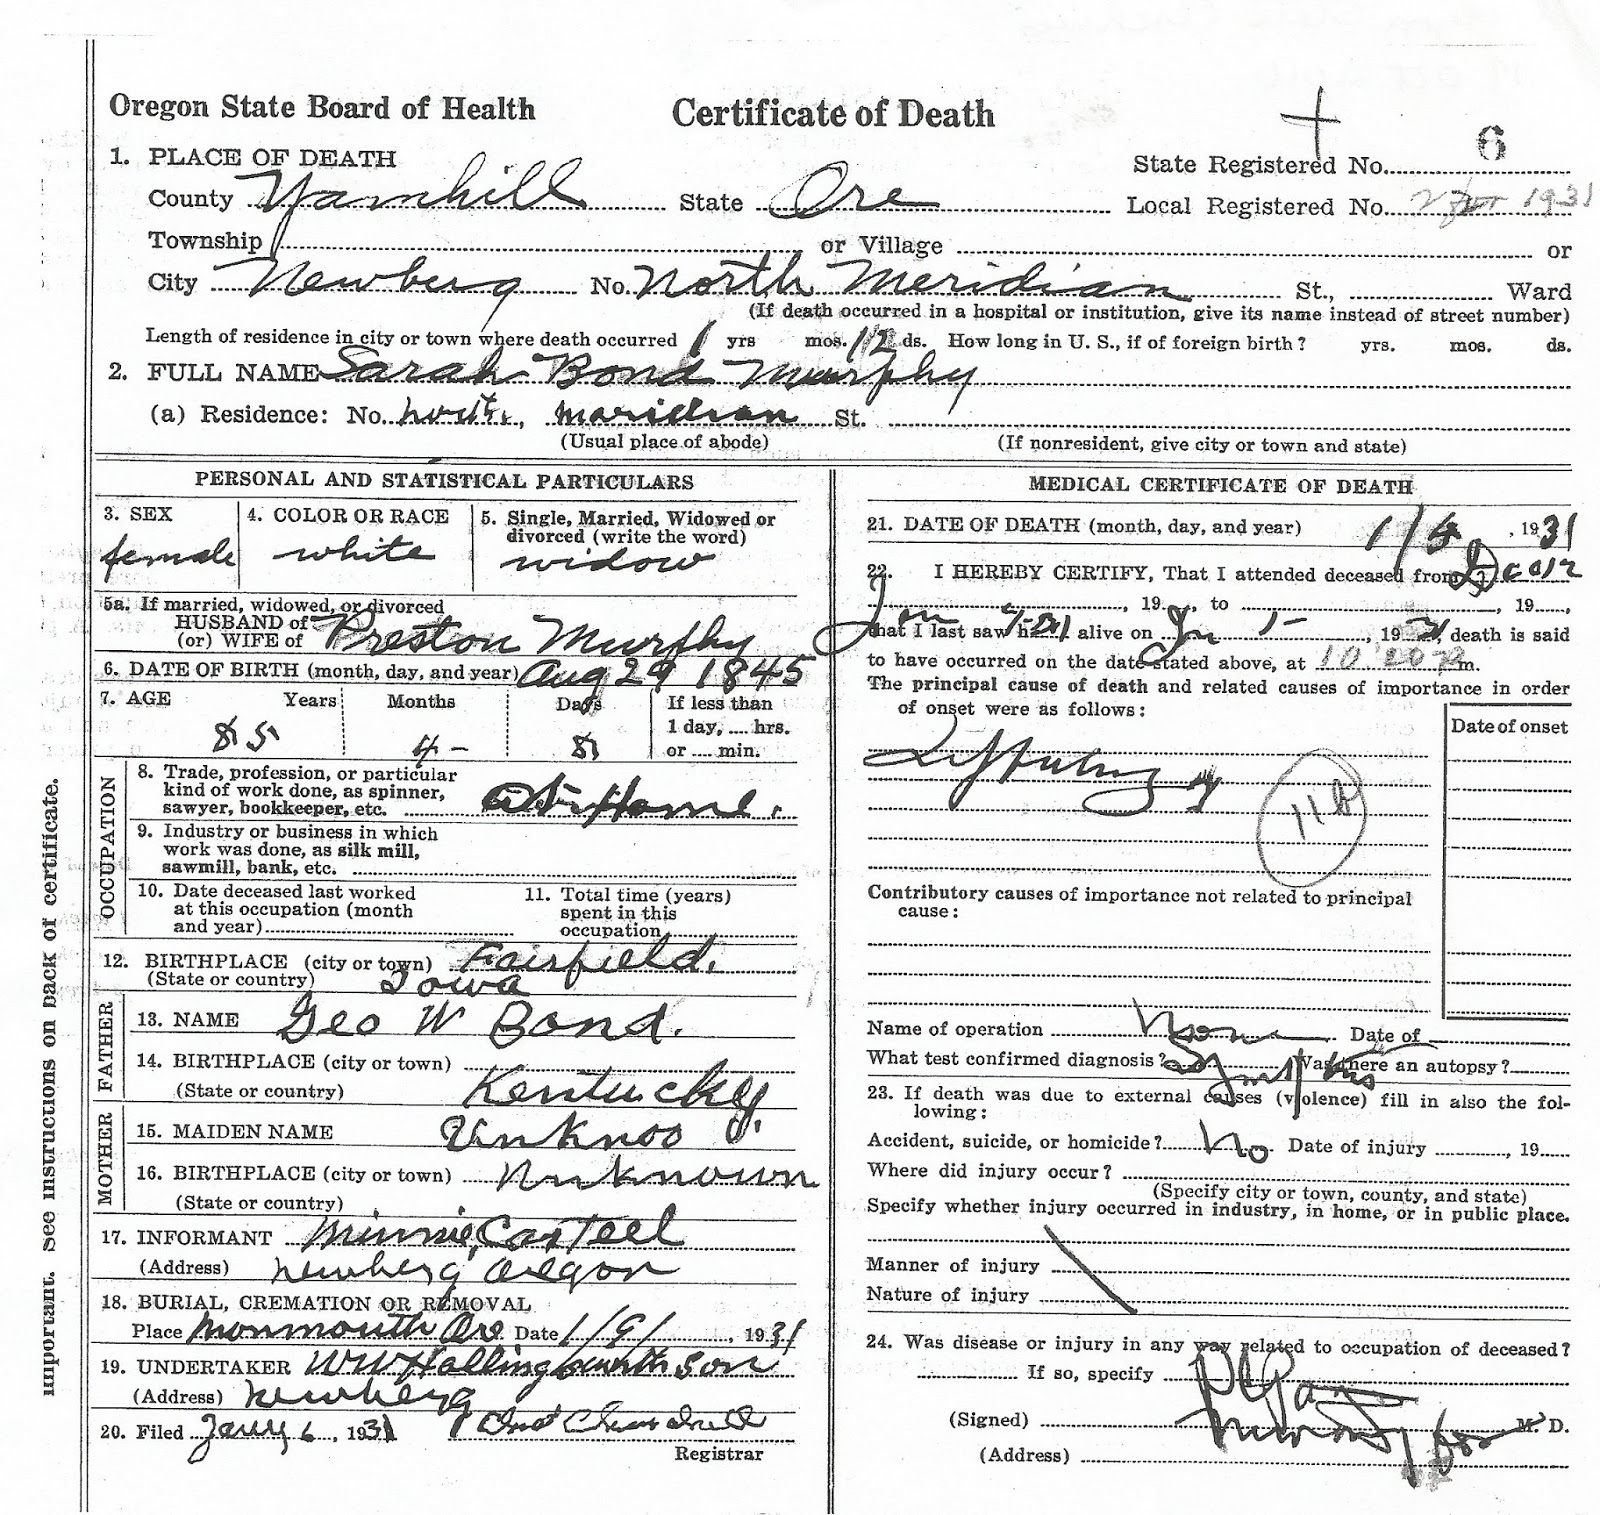 Oregon State Board of Health Certificate of Death
1. PLACE OF DEATH State Registered No. 6
County Yamhill State Ore Local Registered No. 1931
Township or Village or
City Newberg No. North Meridian St., Ward
(If death occurred in a hospital or institution, give its name instead of street number)
Length of residence in city or town where death occurred 1 yrs mos. 12 ds. How long in U. S., if of foreign birth? yrs. mos. ds.
2. FULL NAME Sarah Bond Murphy
(a) Residence: No. North, Maridian St.
(Usual place of abode) (If nonresident, give city or town and state)
PERSONAL AND STATISTICAL PARTICULARS
3. SEX 4. COLOR OR RACE 5. Single, Married, Widowed or
divorced (write the word)
female white widow
5a. If married, widowed, or divorced
HUSBAND of
(or) WIFE of Preston Murphy
6. DATE OF BIRTH (month, day, and year) Aug 29 1845
7. AGE Years Months Days If less than
1 day, .... hrs.
or .... min.
85 4 - 8
OCCUPATION
8. Trade, profession, or particular
kind of work done, as spinner,
sawyer, bookkeeper, etc. at Home.
9. Industry or business in which
work was done, as silk mill,
sawmill, bank, etc.
10. Date deceased last worked
at this occupation (month
and year)
11. Total time (years)
spent in this
occupation
12. BIRTHPLACE (city or town) Fairfield.
(State or country) Iowa
FATHER
13. NAME Geo W Bond.
14. BIRTHPLACE (city or town)
(State or country) Kentucky.
MOTHER
15. MAIDEN NAME
16. BIRTHPLACE (city or town) Unknown
(State or country)
17. INFORMANT Minnie Casteel
(Address) Newberg Oregon
18. BURIAL, CREMATION OR REMOVAL
Place Monmouth Ore Date 1/9/, 1931
19. UNDERTAKER W W Hollingsworth Son
(Address) Newberg
20. Filed Jany 6, 1931
Registrar
important. See instructions on back of certificate.
MEDICAL CERTIFICATE OF DEATH
21. DATE OF DEATH (month, day, and year) 1/ , 1931
22. I HEREBY CERTIFY, That I attended deceased from Dec
, 19 , to , 19 ,
that I last saw h alive on , 19 31 death is said
to have occurred on the date stated above, at 10 20 m.
The principal cause of death and related causes of importance in order
of onset were as follows:
Date of onset
Contributory causes of importance not related to principal
cause:
Name of operation None Date of
What test confirmed diagnosis? Symptoms Was there an autopsy?
23. If death was due to external causes (violence) fill in also the fol-
lowing:
Accident, suicide, or homicide? No Date of injury , 19
Where did injury occur?
(Specify city or town, county, and state)
Specify whether injury occurred in industry, in home, or in public place.
Manner of injury
Nature of injury
24. Was disease or injury in any way related to occupation of deceased?
If so, specify
(Signed) M. D.
(Address)